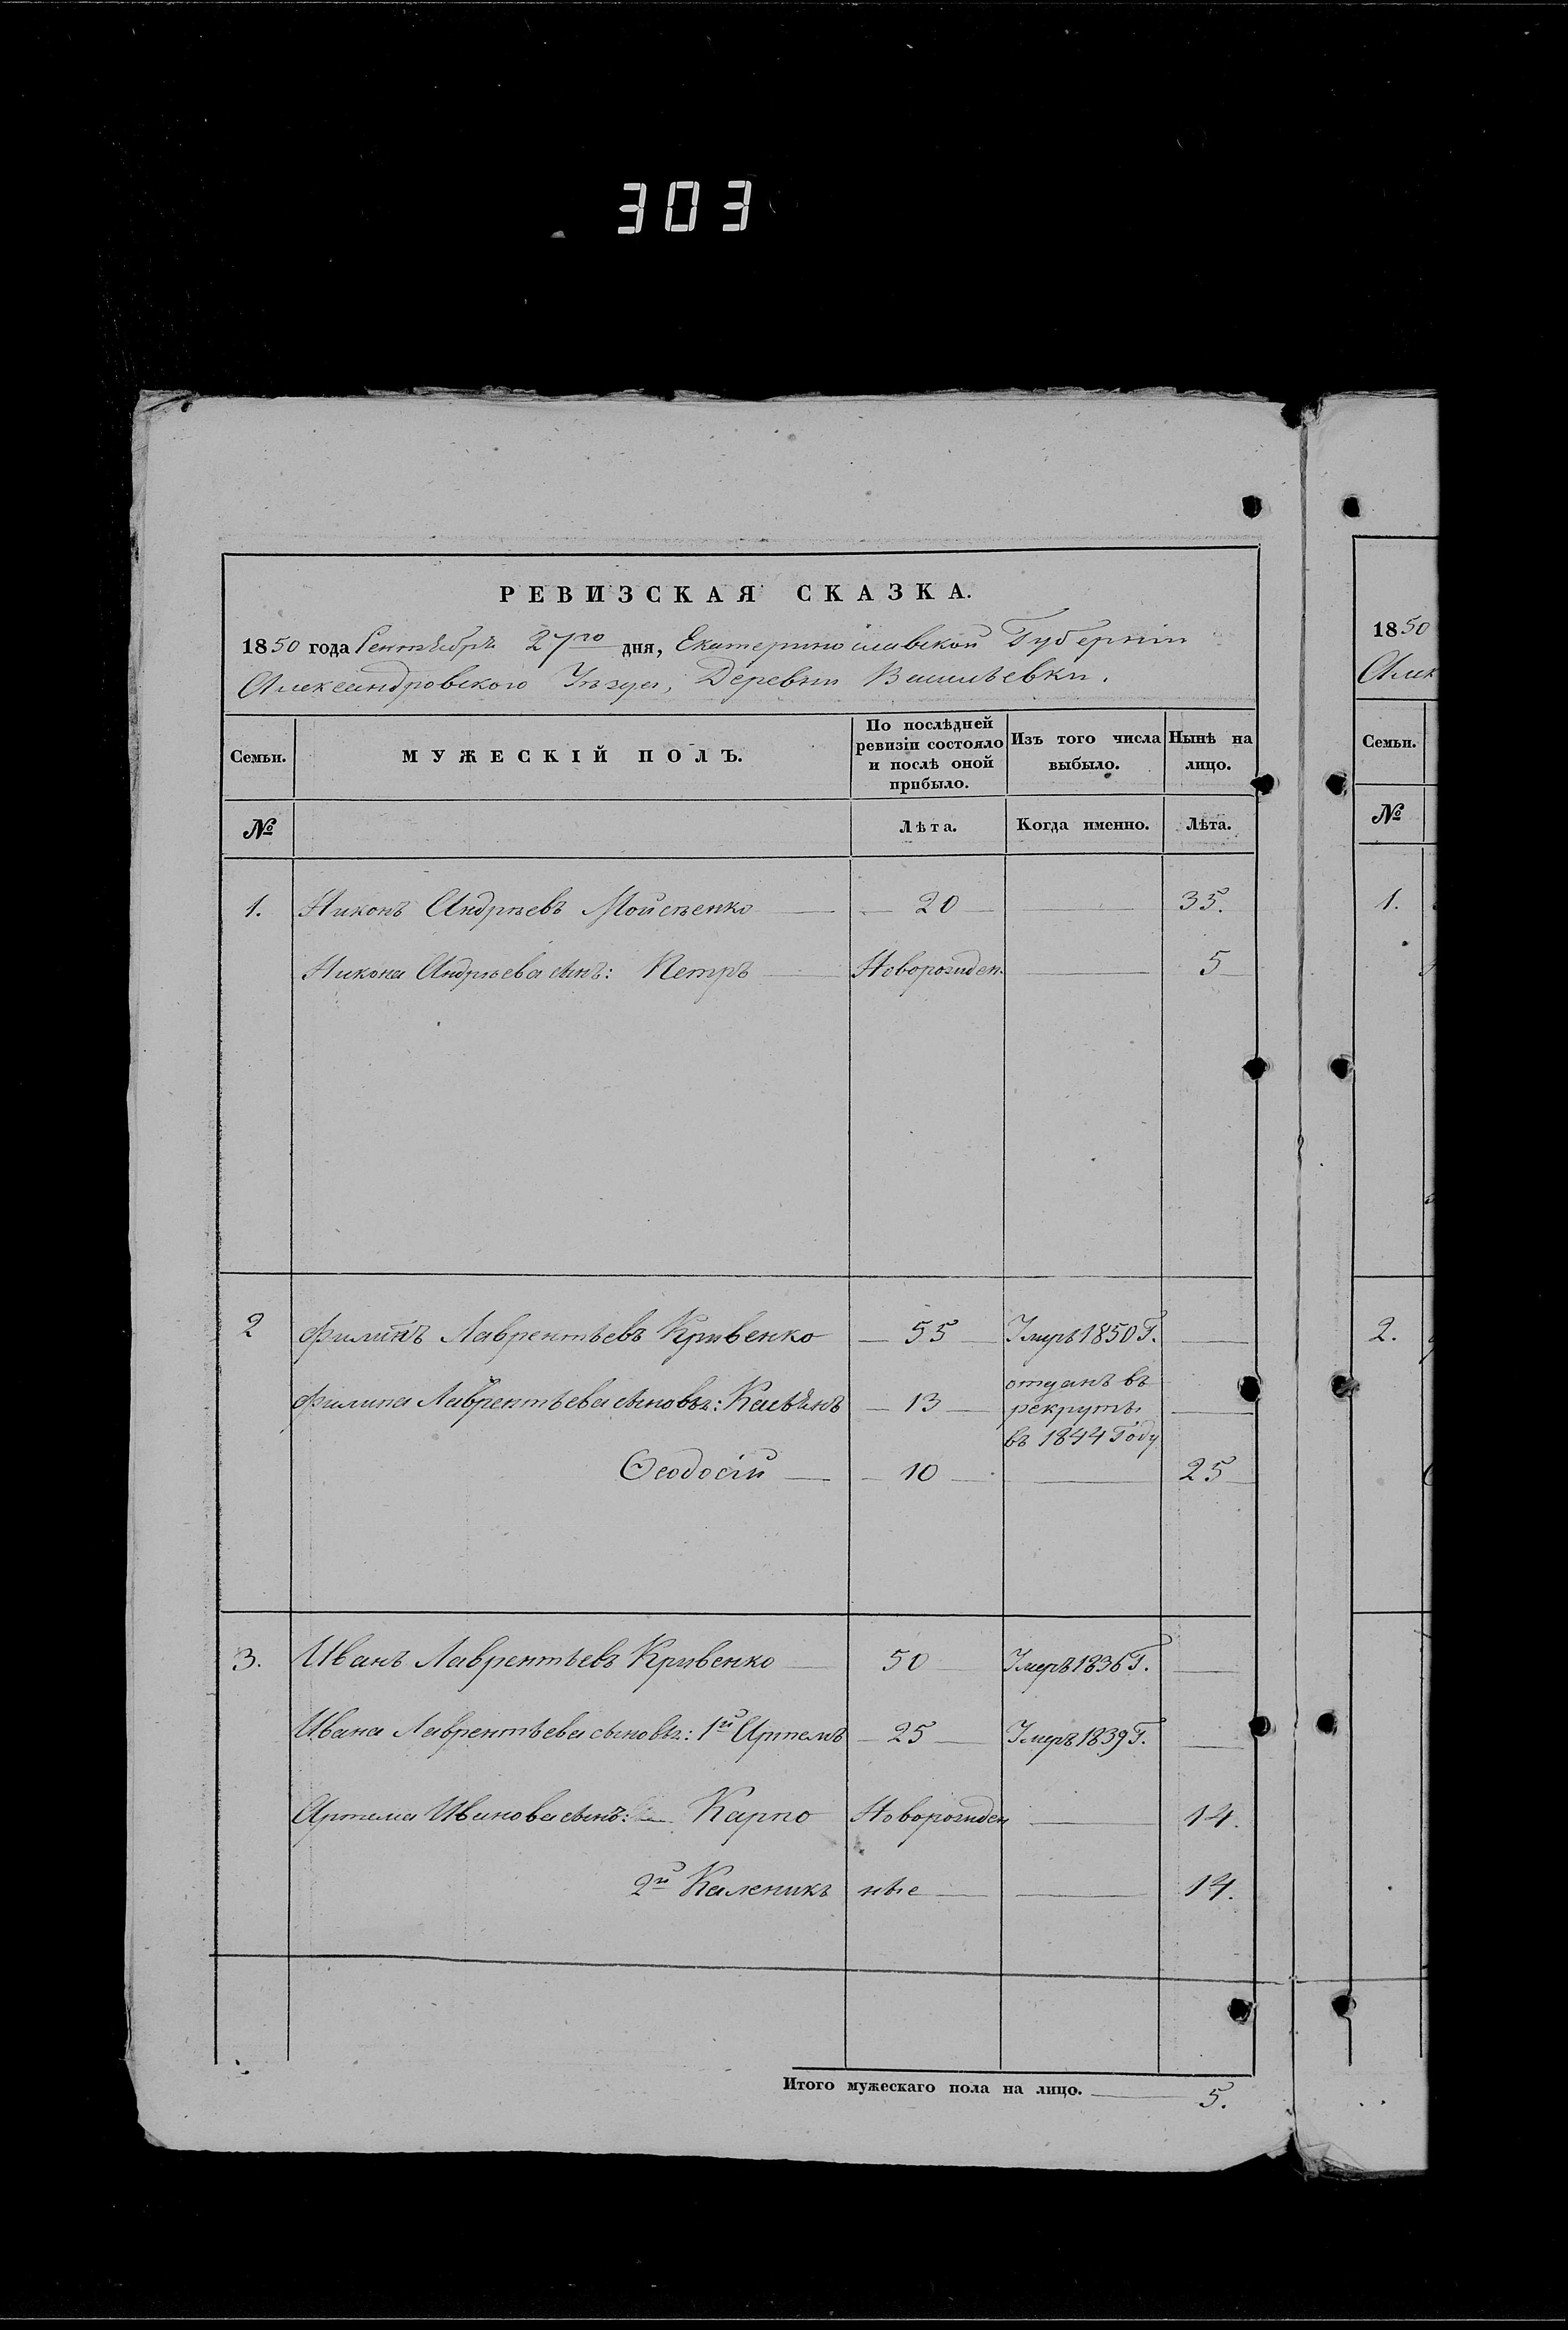 303
РЕВИЗСКАЯ СКАЗКА.
1850 года Сентября 27го дня, Екатеринославской Губерніи
Александровского Уѣзда, Деревни Васильевки.
Семьи.
МУЖЕСКІЙ ПОЛЪ.
По послѣдней ревизіи состояло и послѣ оной прибыло.
Изъ того числа выбыло.
Нынѣ на лицо.
№
Лѣта.
Когда именно.
Лѣта.
1. Никонъ Андрѣевъ Мойсѣенко 20 35.
Никона Андрѣева сынъ: Петръ Новорожден. 5
2 Филипъ Лаврентьевъ Кривенко 55 Умеръ 1850 Г.
Филипа Лаврентьева сыновья: 13 отданъ въ
рекруты
въ 1844 Году
Ѳеодосій 10 25
3. Иванъ Лаврентьевъ Кривенко 50 Умеръ 1836 Г.
Ивана Лаврентьева сыновья: 1й Артемъ 25 Умеръ 1839 Г.
Артема Иванова сынъ: Карпо Новорожден 14.
2й Каленикъ ные 14.
Итого мужескаго пола на лицо. 5.
1850
Алек
Семьи.
№
1.
2.